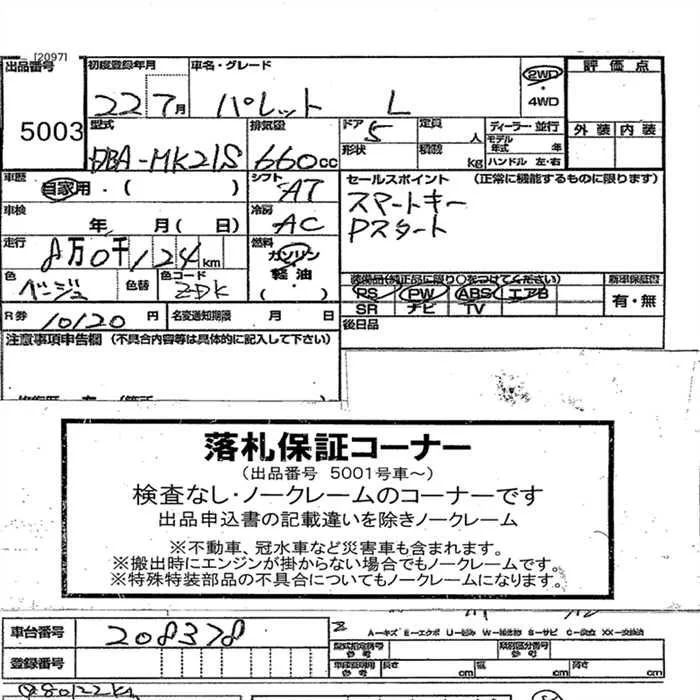 [2097]
出品番号 初度登録年月 車名・グレード 評価点
22 7月 パレット L 2WD
4WD
5003 外装 内装
型式 排気量 ドア 5 定員 人 ディーラー・並行
DBA-MK21S 660cc 形状 積載 kg モデル年式 年
ハンドル 左・右
車歴 シフト セールスポイント (正常に機能するものに限ります)
自家用・( ) AT スマートキー
車検 冷房 Pスタート
年 月( 日) AC
走行 燃料
8万0千124km ガソリン
軽油
( )
色 色替 色コード 装備品(純正品に限り○をつけてください) 新車保証書
ベージュ ZDK PS PW ABS エアB 有・無
SR ナビ TV
R券 10120円 名変通知期限 月 日 後日品
注意事項申告欄 (不具合内容等は具体的に記入して下さい)
落札保証コーナー
(出品番号 5001号車〜)
検査なし・ノークレームのコーナーです
出品申込書の記載違いを除きノークレーム
※不動車、冠水車など災害車も含まれます。
※搬出時にエンジンが掛からない場合でもノークレームです。
※特殊特装部品の不具合についてもノークレームになります。
車台番号 208378
A-キズ E-エクボ U-凹み W-補修跡 S-サビ C-腐食 XX-交換済
型式指定番号 類別区分番号
登録番号 長さ cm 幅 cm 高さ cm